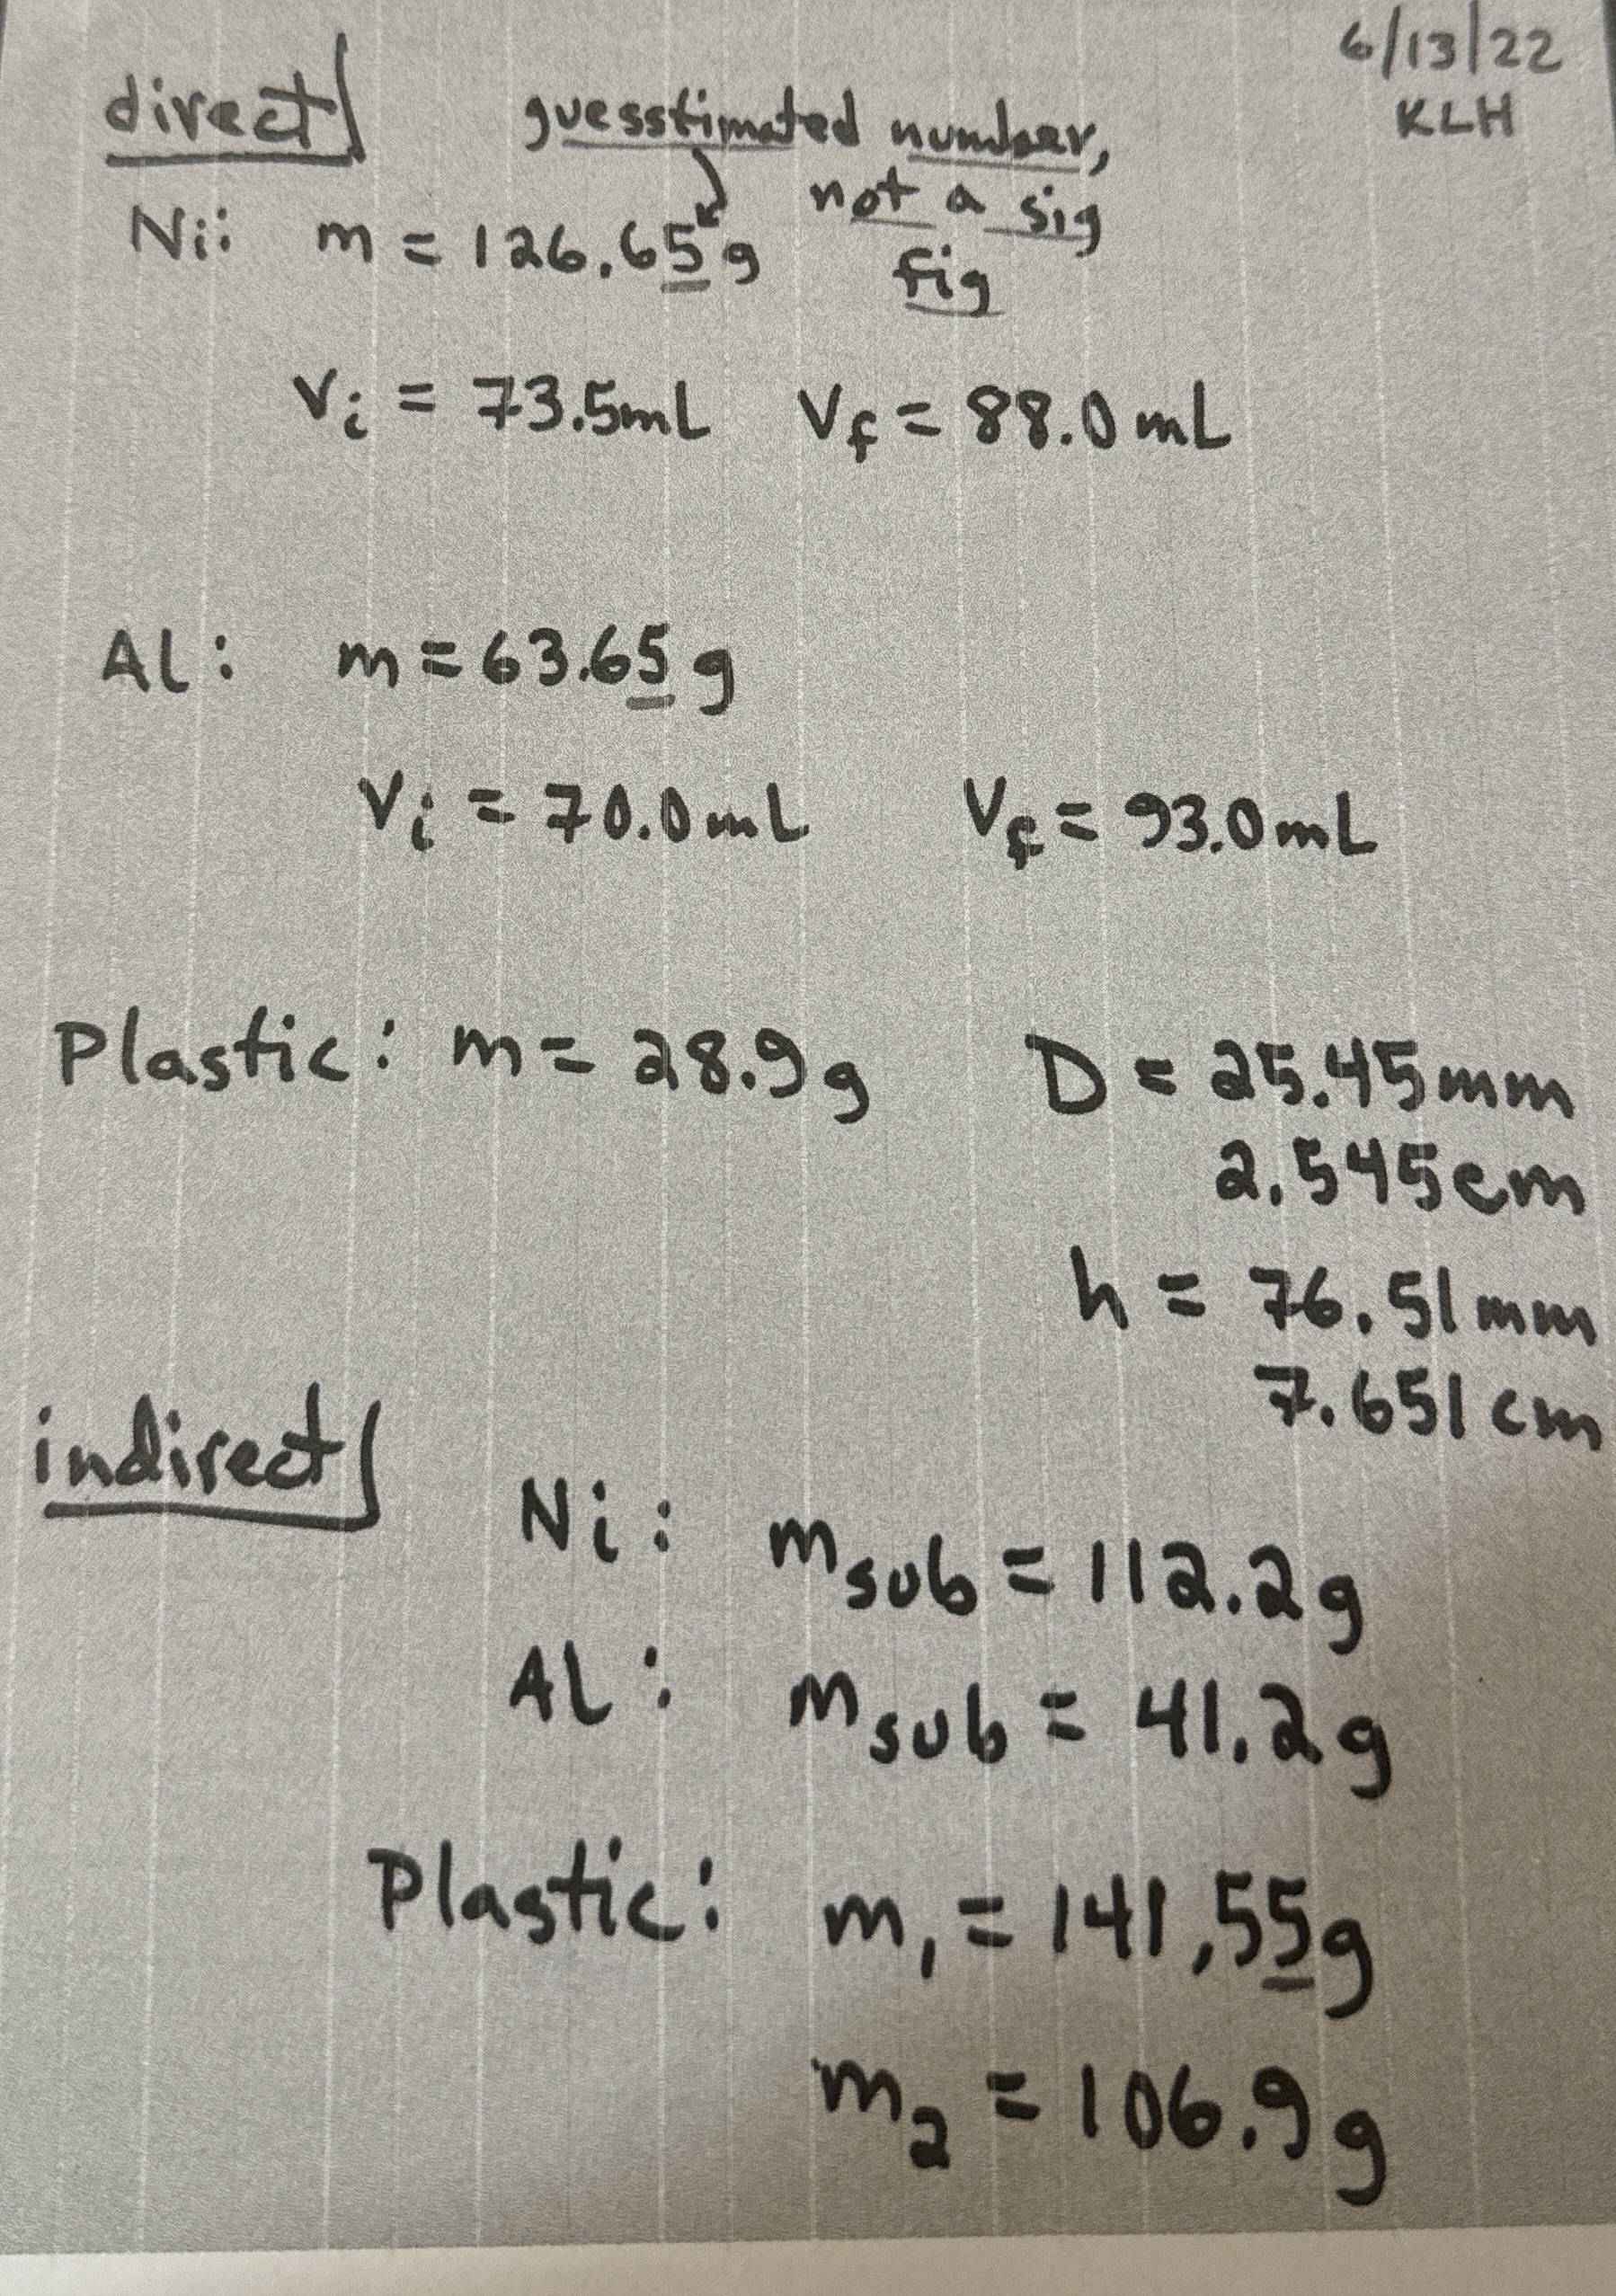 6/13/22
KLH
direct
guesstimated number,
not a sig
fig
Ni: m = 126.65 g
Vi = 73.5mL Vf = 88.0 mL
Al: m = 63.65 g
Vi = 70.0 mL Vf = 93.0 mL
Plastic: m = 28.9 g D = 25.45 mm
2.545 cm
h = 76.51 mm
7.651 cm
indirect
Ni: msub = 112.2 g
Al: msub = 41.2 g
Plastic: m1 = 141,55 g
m2 = 106.9 g